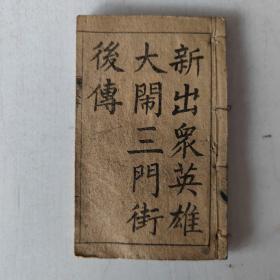 新出眾英雄
大鬧三門街
後傳